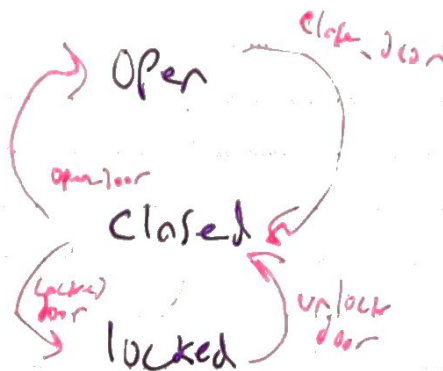 Close_door
Open
open door
Closed
locked
door
unlock
door
locked